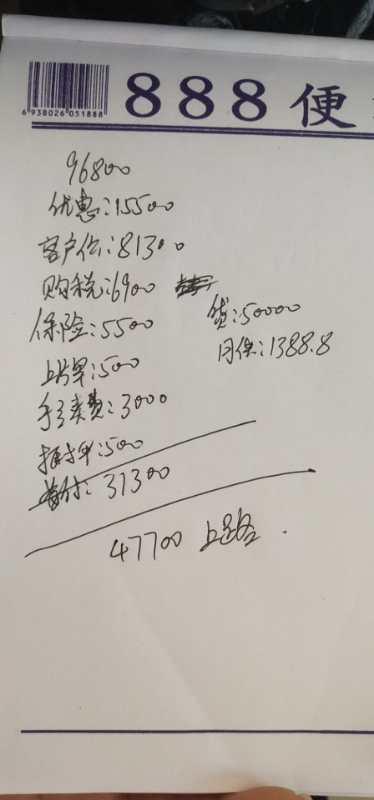 888便
6 938026 051888
96800
优惠:15500
客户价:81300
购税:6900
贷:50000
保险:5500
月供:1388.8
上牌:500
手续费:3000
抵押:500
首付:31300
47700 上路.